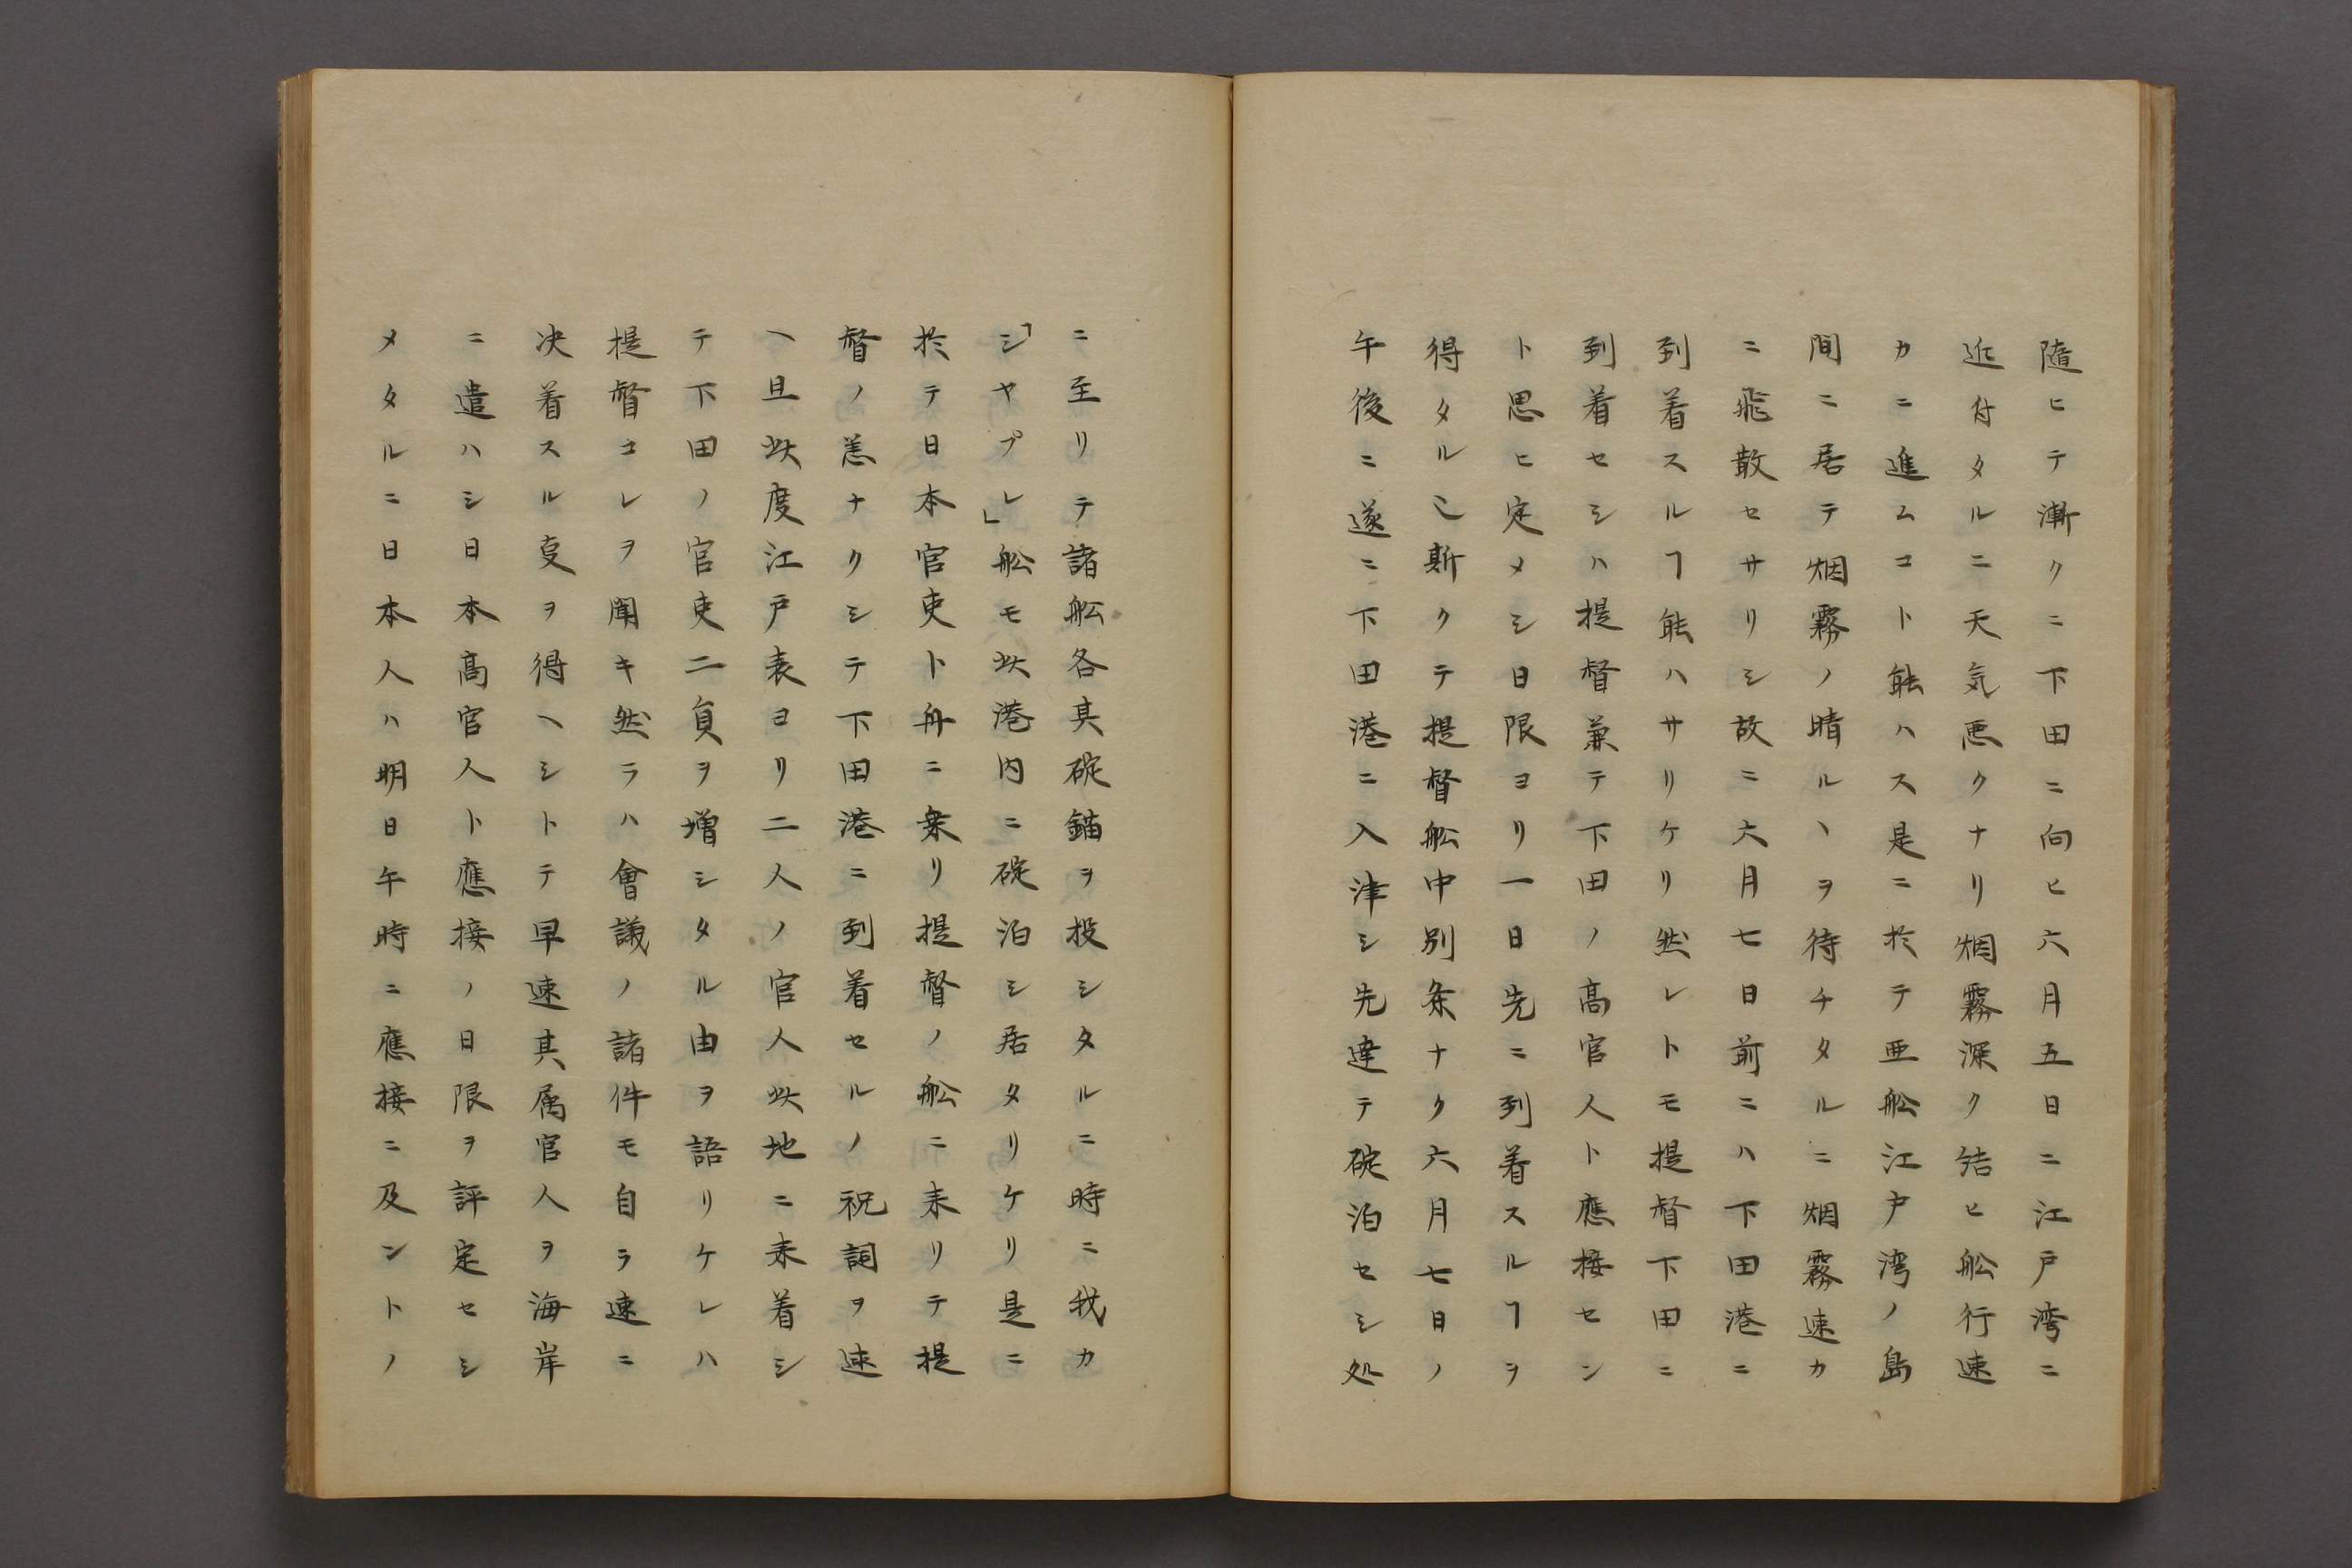 隨ヒテ漸クニ下田ニ向ヒ六月五日ニ江戸湾ニ
近付タルニ天気悪クナリ烟霧深ク結ヒ舩行速
カニ進ムコト能ハス是ニ於テ亜舩江戸湾ノ島
間ニ居テ烟霧ノ晴ルヽヲ待チタルニ烟霧速カ
ニ飛散セサリシ故ニ六月七日前ニハ下田港ニ
到着スルヿ能ハサリケリ然レトモ提督下田ニ
到着セシハ提督兼テ下田ノ髙官人ト應接セン
ト思ヒ定メシ日限ヨリ一日先ニ到着スルヿヲ
得タル也斯クテ提督舩中別条ナク六月七日ノ
午後ニ遂ニ下田港ニ入津シ先達テ碇泊セシ処
ニ至リテ諸舩各其碇錨ヲ投シタルニ時ニ我カ
「シヤプレ」舩モ此港内ニ碇泊シ居タリケリ是ニ
於テ日本官吏ト舟ニ乗リ提督ノ舩ニ来リテ提
督ノ恙ナクシテ下田港ニ到着セルノ祝詞ヲ述
ヘ且此度江戸表ヨリ二人ノ官人此地ニ来着シ
テ下田ノ官吏二負ヲ増シタル由ヲ語リケレハ
提督コレヲ聞キ然ラハ會議ノ諸件モ自ラ速ニ
决着スル叓ヲ得ヘシトテ早速其属官人ヲ海岸
ニ遣ハシ日本髙官人ト應接ノ日限ヲ評定セシ
メタルニ日本人ハ明日午時ニ應接ニ及ントノ